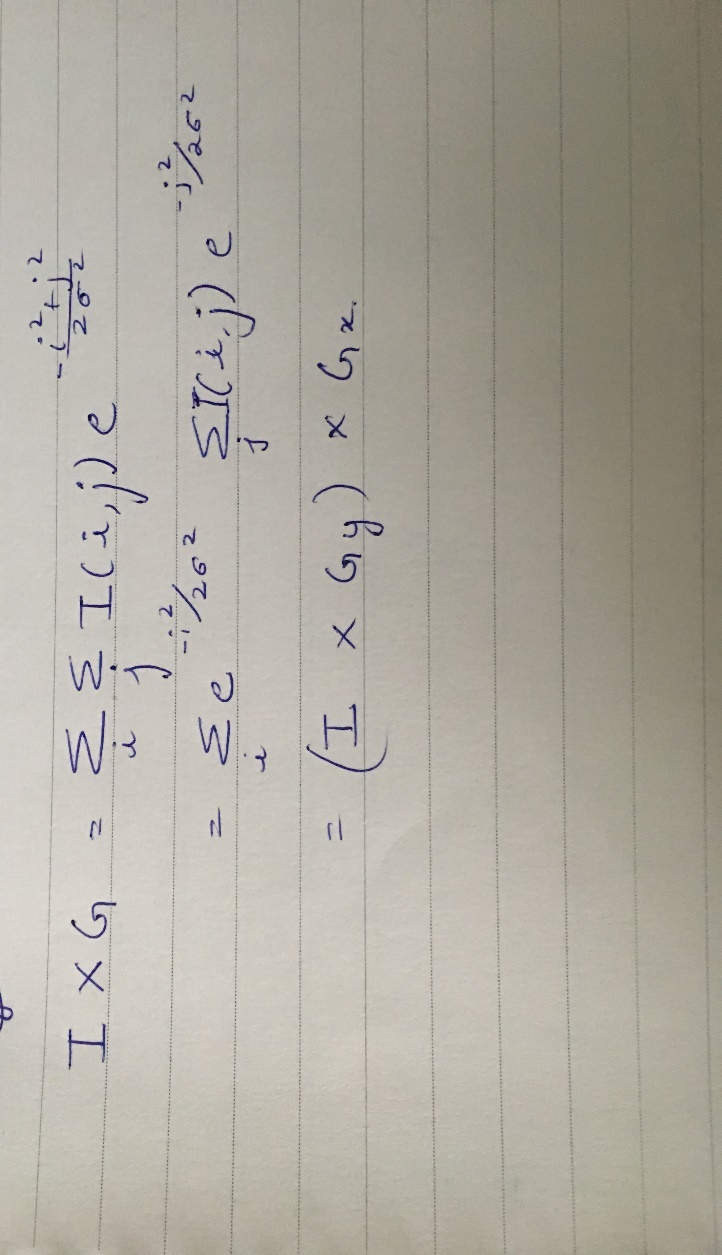 I × G = Σ_i Σ_j I(i,j) e^{-\frac{i^2+j^2}{2σ^2}}
= Σ_i e^{-i^2/2σ^2} Σ_j I(i,j) e^{-j^2/2σ^2}
= (I × Gy) × Gx.